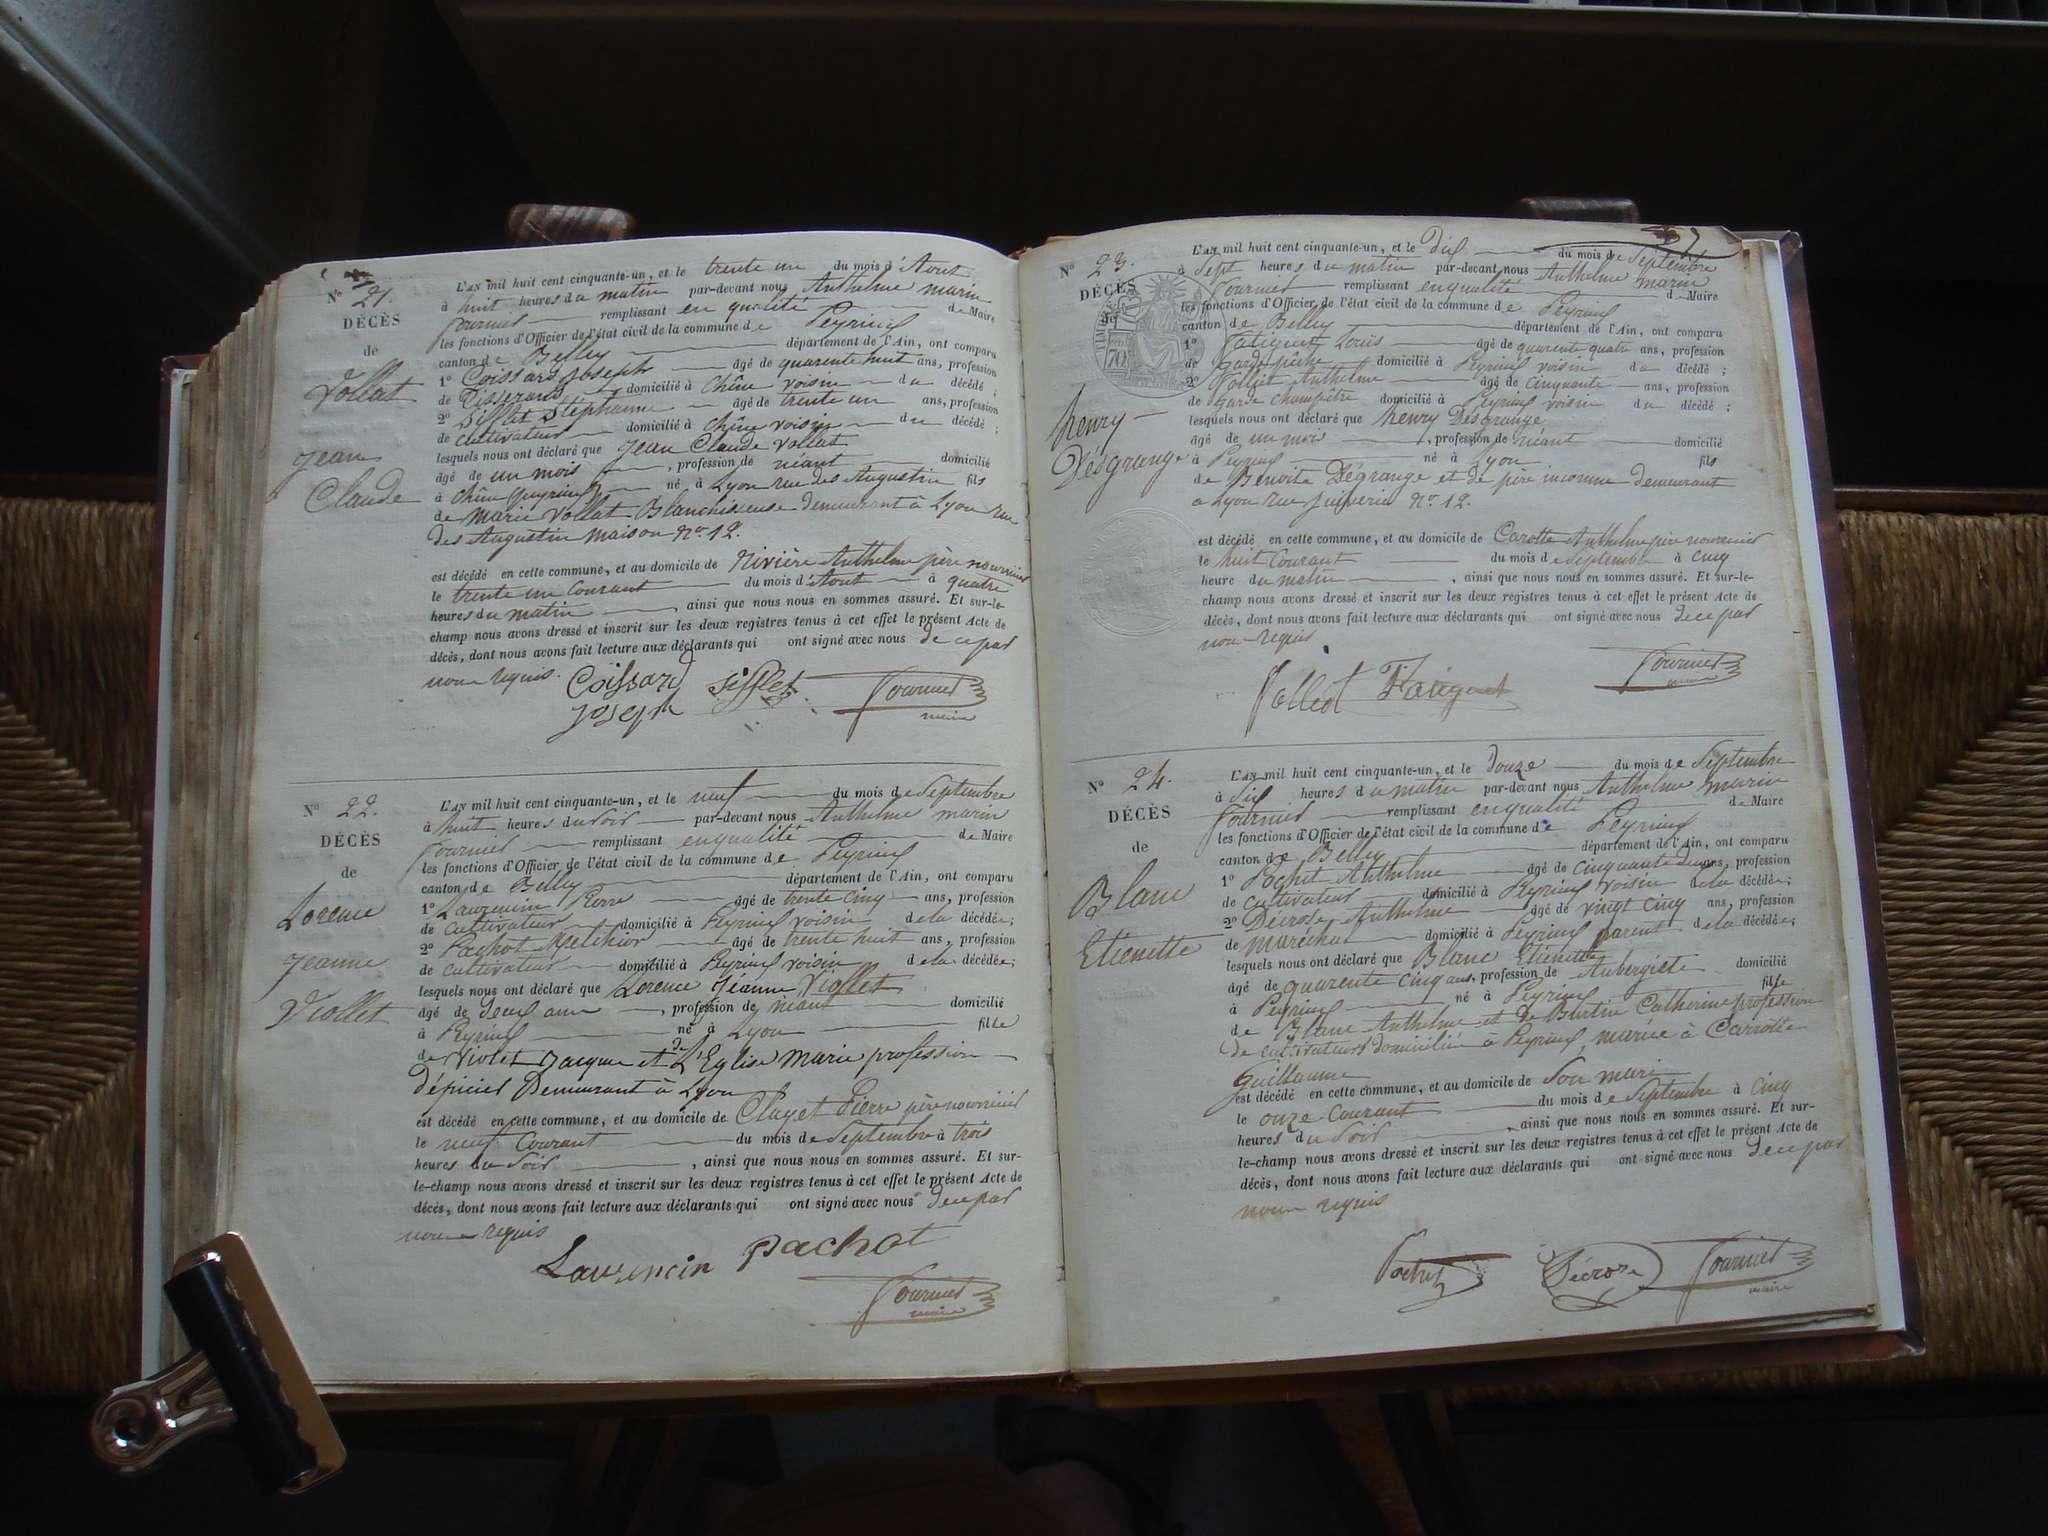 N° 21.
DÉCÈS
de
Vollat
Jean
Claude
L'AN mil huit cent cinquante-un, et le trente un du mois d'Aout
à huit heures du matin par-devant nous Anthelme marin
Fournier remplissant en qualité de Maire
les fonctions d'Officier de l'état civil de la commune de Peyrieu
canton de Belley département de l'Ain, ont comparu
1° Coissard Joseph âgé de quarente huit ans, profession
de Tisserand domicilié à Chêne voisin du décédé ;
2° Sifflet Stéphanne âgé de trente un ans, profession
de cultivateur domicilié à Chêne voisin du décédé ;
lesquels nous ont déclaré que Jean Claude Vollat
âgé de un mois , profession de néant domicilié
à Chêne Peyrieu né à Lyon rue des Augustin fils
de Marie Vollat Blanchisseuse demeurant à Lyon rue
des Augustin maison No. 12.
est décédé en cette commune, et au domicile de Rivière Anthelme père nourricier
le trente un Courant du mois d'Aout à quatre
heures du matin , ainsi que nous nous en sommes assuré. Et sur-le-
champ nous avons dressé et inscrit sur les deux registres tenus à cet effet le présent Acte de
décès, dont nous avons fait lecture aux déclarants qui ont signé avec nous de ce par
nous requis. Coissard Sifflet Fournier
Joseph maire
N° 22.
DÉCÈS
de
Lorence
Jeanne
Viollet
L'AN mil huit cent cinquante-un, et le neuf du mois de Septembre
à huit heures du soir par-devant nous Anthelme marin
Fournier remplissant en qualité de Maire
les fonctions d'Officier de l'état civil de la commune de Peyrieu
canton de Belley département de l'Ain, ont comparu
1° Laurencin Pierre âgé de trente cinq ans, profession
de cultivateur domicilié à Peyrieu voisin de la décédée;
2° Pachot Melchior âgé de trente huit ans, profession
de cultivateur domicilié à Peyrieu voisin de la décédée;
lesquels nous ont déclaré que Lorence Jeanne Viollet
âgé de deux ans , profession de néant domicilié
à Peyrieu né à Lyon fille
de Violet Jacque et de L'Eglise Marie profession
d'épicier Demeurant à Lyon
est décédé en cette commune, et au domicile de Clayet Pierre père nourricier
le neuf Courant du mois de Septembre à trois
heures du soir , ainsi que nous nous en sommes assuré. Et sur-
le-champ nous avons dressé et inscrit sur les deux registres tenus à cet effet le présent Acte de
décès, dont nous avons fait lecture aux déclarants qui ont signé avec nous de ce par
nous requis
Laurencin Pachot
Fournier
maire
N° 23.
DÉCÈS
henry
Désgrange
L'AN mil huit cent cinquante-un, et le dix du mois de Septembre
à Sept heures du matin par-devant nous Anthelme marin
Fournier remplissant en qualité de Maire
les fonctions d'Officier de l'état civil de la commune de Peyrieu
canton de Belley département de l'Ain, ont comparu
1° Fatiguet Louis âgé de quarente quatre ans, profession
de Garde pêche domicilié à Peyrieu voisin du décédé ;
2° Anthelme âgé de cinquante ans, profession
de Garde champêtre domicilié à Peyrieu voisin du décédé ;
lesquels nous ont déclaré que henry Désgrange
âgé de un mois , profession de néant domicilié
à Peyrieu né à Lyon fils
de Benoite Dégrange et de père inconnu demeurant
à Lyon rue Juiverie No. 12.
est décédé en cette commune, et au domicile de Carotte Anthelme père nourricier
le huit Courant du mois de Septembre à cinq
heure du matin , ainsi que nous nous en sommes assuré. Et sur-le-
champ nous avons dressé et inscrit sur les deux registres tenus à cet effet le présent Acte de
décès, dont nous avons fait lecture aux déclarants qui ont signé avec nous de ce par
nous requis
Fournier
maire
N° 24.
DÉCÈS
de
Blanc
Etienette
L'AN mil huit cent cinquante-un, et le Douze du mois de Septembre
à six heures du matin par-devant nous Anthelme marin
Fournier remplissant en qualité de Maire
les fonctions d'Officier de l'état civil de la commune de Peyrieu
canton de Belley département de l'Ain, ont comparu
1° Pochet Anthelme âgé de cinquante deux ans, profession
de cultivateur domicilié à Peyrieu voisin de la décédée;
2° Décroze Anthelme âgé de vingt cinq ans, profession
de maréchal domicilié à Peyrieu parent de la décédée;
lesquels nous ont déclaré que Blanc Etienette
âgé de quarente cinq ans, profession de Aubergiste domicilié
à Peyrieu né à Peyrieu fille
de Blanc Anthelme et de Burtin Catherine profession
de cultivateurs domicilié à Peyrieu, mariée à Carrotte
Guillaume
est décédé en cette commune, et au domicile de son mari
le onze courant du mois de Septembre à cinq
heures du soir , ainsi que nous nous en sommes assuré. Et sur-
le-champ nous avons dressé et inscrit sur les deux registres tenus à cet effet le présent Acte de
décès, dont nous avons fait lecture aux déclarants qui ont signé avec nous de ce par
nous requis
Pochet Décroze Fournier
maire